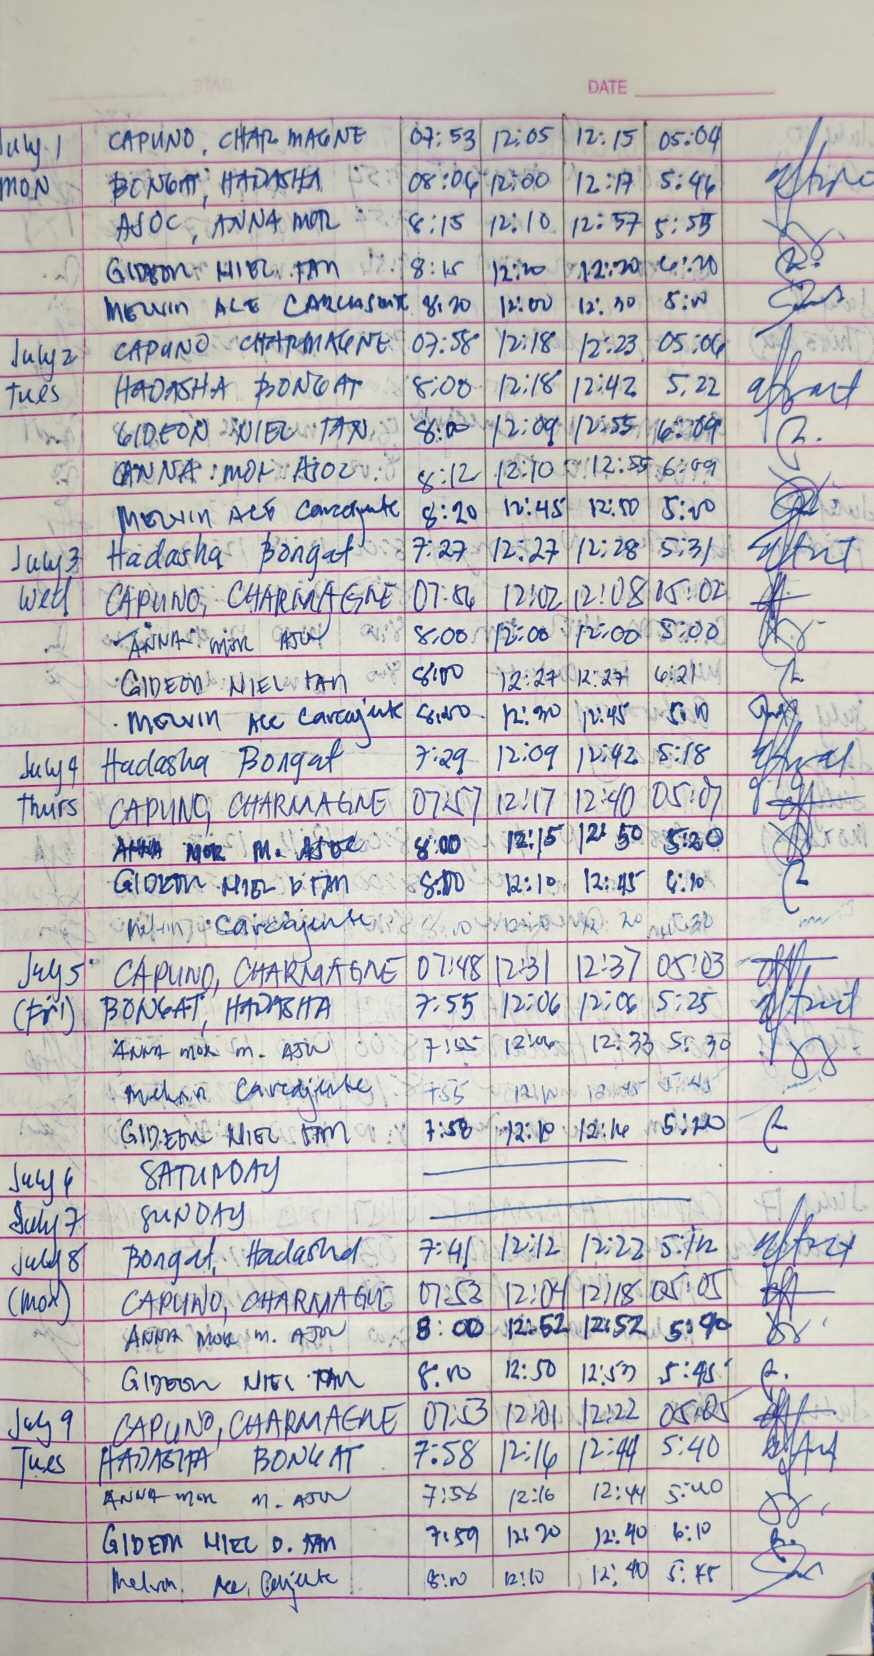 DATE
July 1 CAPUNO, CHARMAGNE 07:53 12:05 12:15 05:04
MON BONGAT, HADASHA 08:06 12:00 12:17 5:46
AJOC, ANNA MOR 8:15 12:10 12:57 5:55
GIDEON NIEL TAN 8:15 12:20 12:20 6:20
MELVIN ACE 8:20 12:00 12:30 5:00
July 2 CAPUNO CHARMAGNE 07:58 12:18 12:23 05:06
Tues HADASHA BONGAT 8:00 12:18 12:42 5.22
GIDEON NIEL TAN 8:00 12:09 12:55 6:09
ANNA MOR AJOC 8:12 12:10 12:55 6:09
MELVIN ACE Carcajente 8:20 12:45 12:50 5:00
July 3 Hadasha Bongat 7:27 12:27 12:28 5:31
Wed CAPUNO, CHARMAGNE 07:56 12:02 12:08 05:02
ANNA MOR AJOC 8:00 12:00 12:00 5:00
GIDEON NIEL TAN 8:00 12:27 12:27 6:21
MELVIN Ace Carcajente 8:00 12:30 12:45 5:10
July 4 Hadasha Bongat 7:29 12:09 12:42 5:18
Thurs CAPUNO, CHARMAGNE 07:57 12:17 12:40 05:07
ANNA MOR M. AJOC 8:00 12:15 12:50 5:20
GIDEON NIEL D. TAN 8:00 12:10 12:45 6:10
Carcajente
July 5 CAPUNO, CHARMAGNE 07:48 12:31 12:37 05:03
(Fri) BONGAT, HADASHA 7:55 12:06 12:06 5:25
ANNA MOR M. AJOC 7:55 12:06 12:33 5:30
Melvin Carcajente 755 5:45
GIDEON NIEL TAN 7:58 12:10 12:16 5:20
July 6 SATURDAY
July 7 SUNDAY
July 8 Bongat, Hadasha 7:41 12:12 12:22 5:12
(mon) CAPUNO, CHARMAGNE 07:53 12:04 12:18 05:05
ANNA MOR M. AJOC 8:00 12:52 12:52 5:40
GIDEON NIEL TAN 8:00 12:50 12:53 5:45
July 9 CAPUNO, CHARMAGNE 07:53 12:01 12:22 05:05
Tues HADASHA BONGAT 7:58 12:16 12:44 5:40
ANNA MOR M. AJOC 7:58 12:16 12:44 5:40
GIDEON NIEL D. TAN 7:59 12:20 12:40 6:10
Melvin Ace 8:00 12:10 12:40 5:45